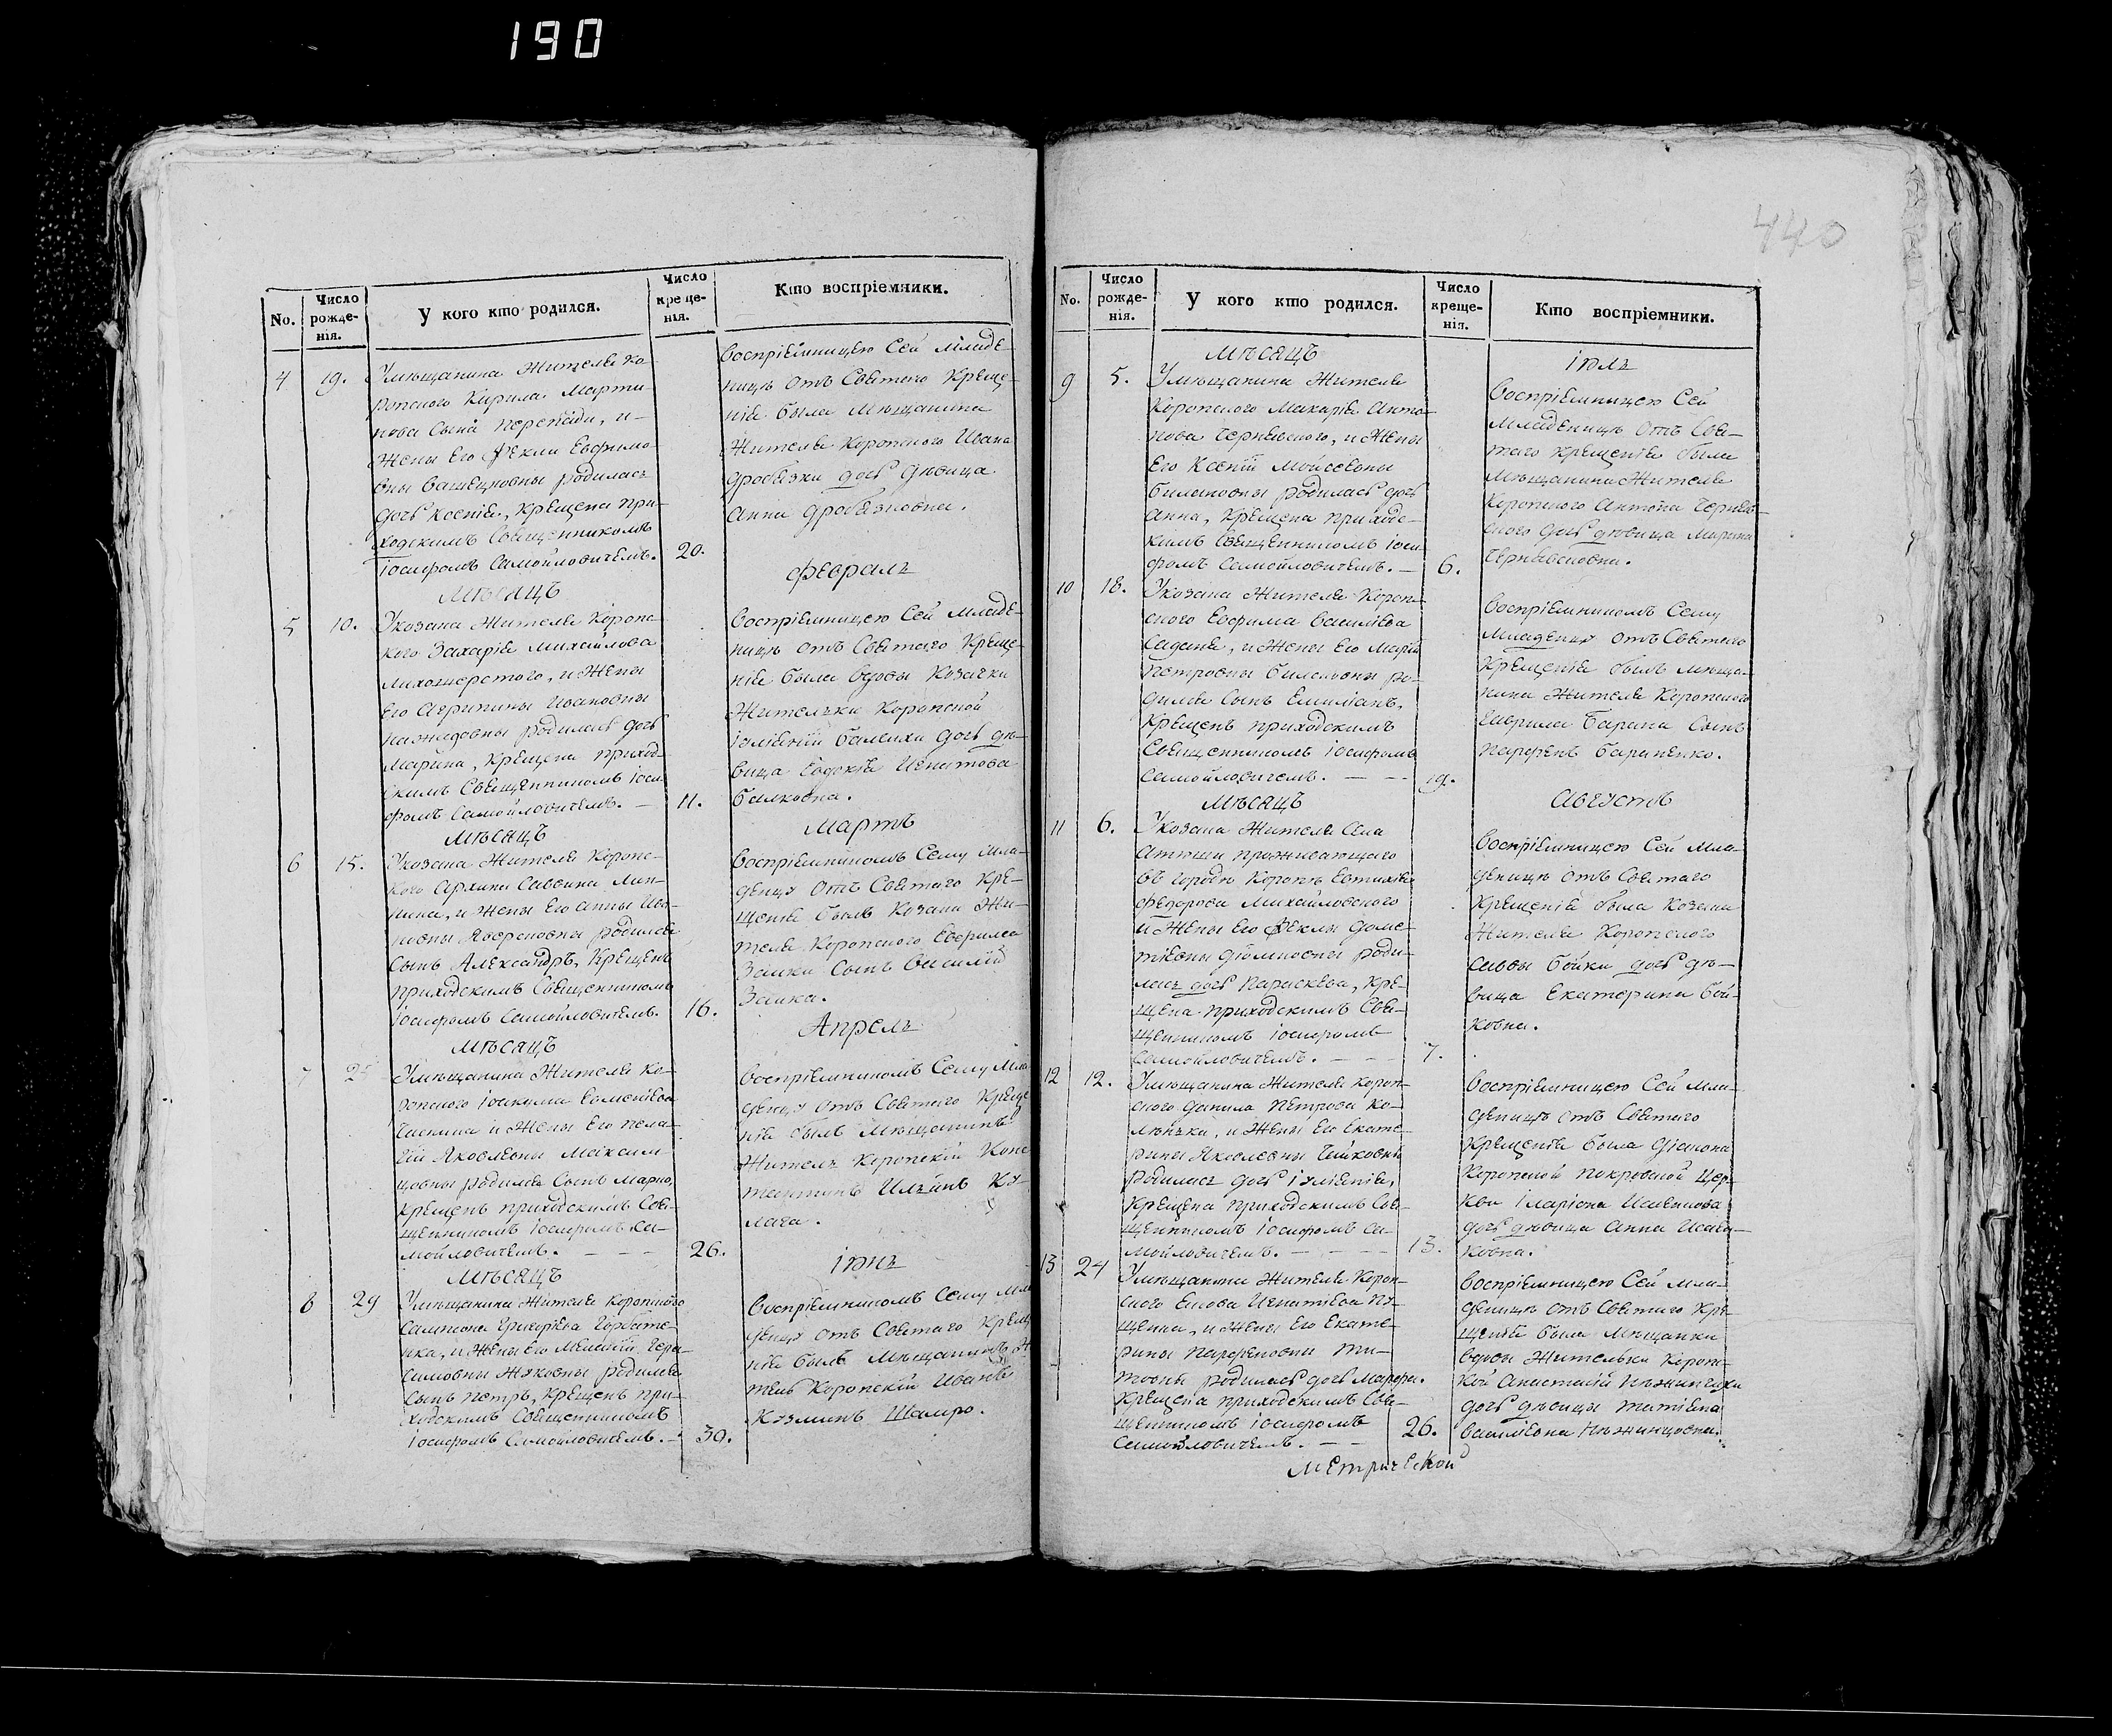 190
440
No.
Число рожде-нія.
У кого кто родился.
Число креще-нія.
Кто воспріемники.
4 19. Умѣщанина Жителя Ко-
ропского Кирила Марти-
нова сына Перепѣди, и
Жены Его Феклы Евфимо-
вны родилась
дочь Ксенія, крещена при-
ходскимъ Священникомъ
Іосифомъ Самойловичемъ. 20.
Воспріемницею Сей младе-
ницѣ отъ Святаго Креще-
нія была Мѣщанина
Жителя Коропского Ивана
Дробязки дочь дѣвица
Анна Дробязковна.
Мѣсяцъ
Февраль
5 10. Укозака Жителя Коропс-
кого Захарія Михайлова
Лихошерстого, и Жены
Его Агрипины Ивановны
родилась дочь
Марина, крещена приход-
скимъ Священникомъ Іоси-
фомъ Самойловичемъ. 11.
Воспріемницею Сей младе-
ницѣ отъ Святаго Креще-
нія была вдовы Козачки
Жительки Коропской
дочь дѣ-
вица Евдокія Игнатова
Балковна.
Мѣсяцъ
Мартъ
6 15. Укозака Жителя Коропс-
кого Архипа Саввина
и Жены Его Анны Ива-
новны родился
сынъ Александръ, крещенъ
приходскимъ Священникомъ
Іосифомъ Самойловичемъ. 16.
Воспріемникомъ Сему мла-
денцу отъ Святаго Кре-
щенія былъ Козака Жи-
теля Коропского
Заики сынъ Василій
Заика.
Мѣсяцъ
Апрель
7 25 Умѣщанина Жителя Ко-
ропского Іоакима
и Жены Его Пела-
гіи Яковлевны Максим-
цовны родился сынъ Марко,
крещенъ приходскимъ Свя-
щенникомъ Іосифомъ Са-
мойловичемъ. 26.
Воспріемникомъ Сему мла-
денцу отъ Святаго Креще-
нія былъ Мѣщанинъ
Житель Коропскій Конс-
тантинъ Ильинъ Ку-
лага.
Мѣсяцъ
Іюнь
8 29 Умѣщанина Жителя Коропского
Сампсона Григорієва Горбате-
нка, и Жены Его Меланіи Гера-
симовны родился
сынъ Петръ, крещенъ при-
ходскимъ Священникомъ
Іосифомъ Самойловичемъ. 30.
Воспріемникомъ Сему мла-
денцу отъ Святаго Креще-
нія былъ Мѣщанинъ Жи-
тель Коропскій Иванъ
Козминъ Шамро.
No.
Число рожде-нія.
У кого кто родился.
Число креще-нія.
Кто воспріемники.
Мѣсяцъ
Іюль
9 5. Умѣщанина Жителя
Коропского Макарія Анто-
нова Чернявского, и Жены
Его Ксеніи Мойсеевны
Билановны родилась дочь
Анна, крещена приходс-
кимъ Священникомъ Іоси-
фомъ Самойловичемъ. 6.
Воспріемницею Сей
младеницѣ отъ Свя-
таго Крещенія была
Мѣщанина Жителя
Коропского Антона Черняв-
ского дочь дѣвица Марина
Чернявсковна.
10 18. Укозака Жителя Короп-
ского Евфима Василіева
и Жены Его Маріи
Петровны ро-
дился сынъ Емиліанъ,
крещенъ приходскимъ
Священникомъ Іосифомъ
Самойловичемъ. 19.
Воспріемникомъ Сему
младенцу отъ Святаго
Крещенія былъ Мѣща-
нина Жителя Коропского
Гаврила Барана сынъ
Парфенъ Бараненко.
Мѣсяцъ
Августъ
11 6. Укозака Жителя Села
Атюши проживающаго
въ городѣ Коропѣ Евтихія
Федорова Михайловского
и Жены Его Феклы Доме-
тіевны роди-
лась дочь Параскева, кре-
щена приходскимъ Свя-
щенникомъ Іосифомъ
Самойловичемъ. 7.
Воспріемницею Сей мла-
деницѣ отъ Святаго
Крещенія была Козака
Жителя Коропского
Саввы Бойка дочь дѣ-
вица Екатерина Бой-
ковна.
12 12. Умѣщанина Жителя Короп-
ского Данила Петрова
и Жены Его Екате-
рины Яковлевны
родилась дочь Іуліянія,
крещена приходскимъ Свя-
щенникомъ Іосифомъ Са-
мойловичемъ. 13.
Воспріемницею Сей мла-
деницѣ отъ Святаго
Крещенія была Діакона
Коропской Покровской Цер-
кви Иларіона Исаенкова
дочь дѣвица Анна Исаен-
ковна.
13 24 Умѣщанина Жителя Короп-
ского Игнатіева
и Жены Его Екате-
рины Парфеновны Ти-
товны родилась дочь Марфа.
крещена приходскимъ Свя-
щенникомъ Іосифомъ
Самойловичемъ. 26.
Воспріемницею Сей мла-
деницѣ отъ Святаго Кре-
щенія была Мѣщанки
вдовы Жительки Коропс-
кой Анастасіи
дочь дѣвица Татіана
Василіевна Нѣжинцовна.
Метрической